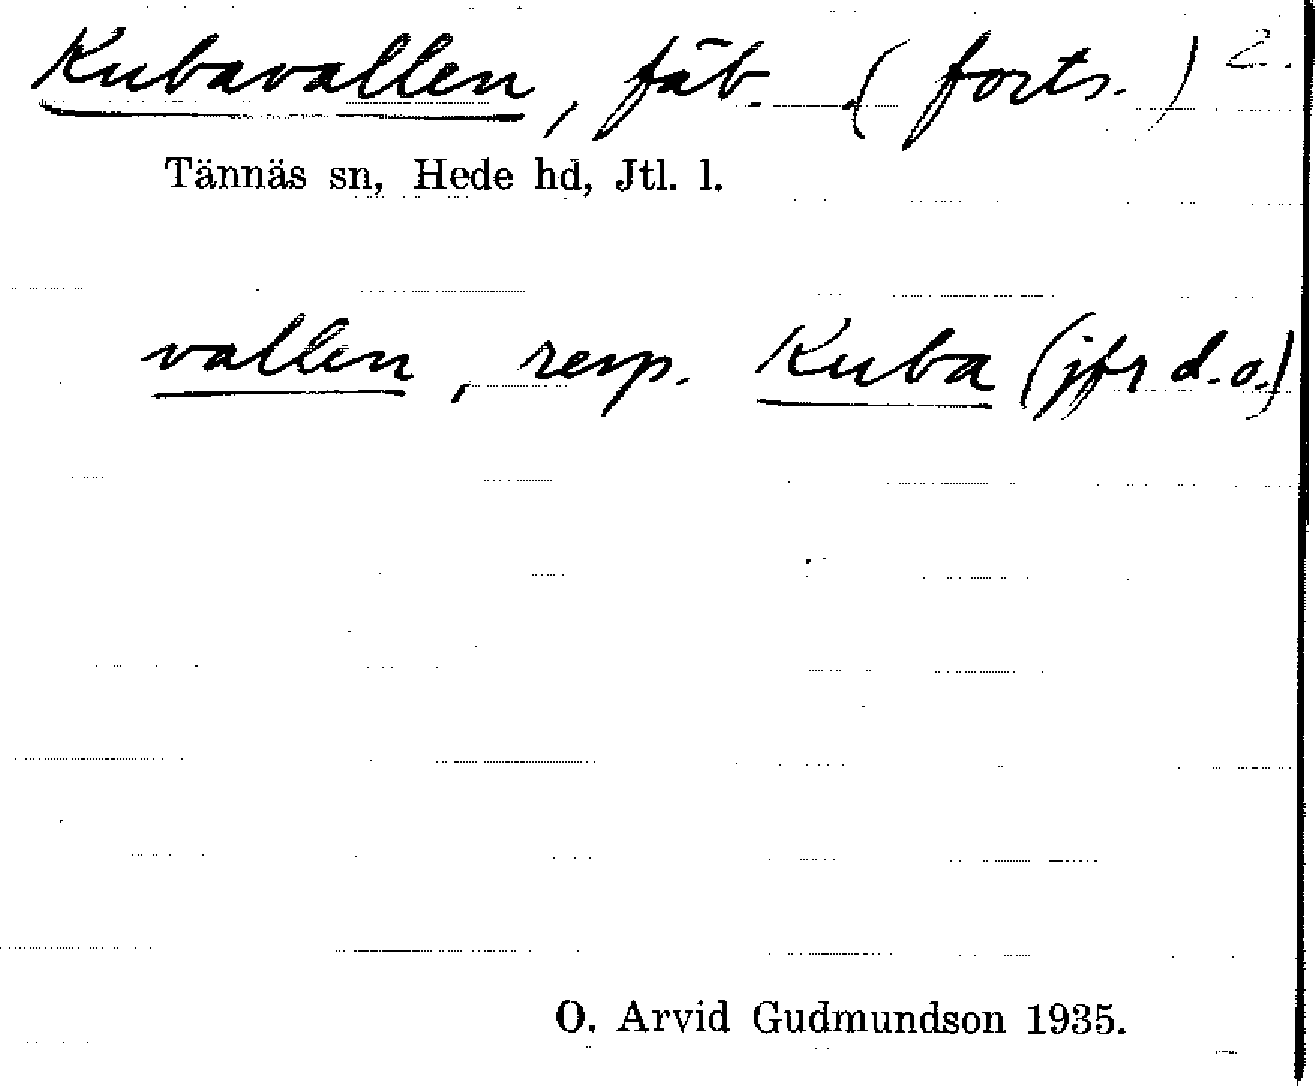 Kubavallen, fäb. (forts.) 2.
Tännäs sn, Hede hd, Jtl. l.
vallen, resp. Kuba (jfr d.o.)
O. Arvid Gudmundson 1935.